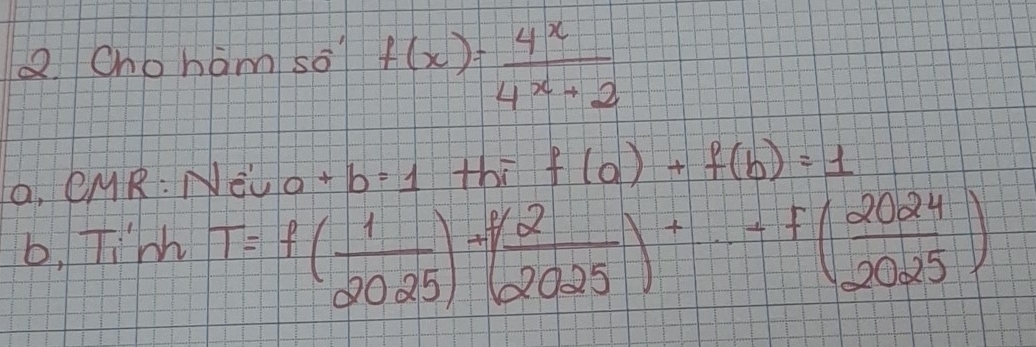 2. Cho hàm số f(x) = \frac{4^x}{4^x + 2}
a, CMR: Nếu a + b = 1 thì f(a) + f(b) = 1
b, Tính T = f(\frac{1}{2025}) + f(\frac{2}{2025}) + ... + f(\frac{2024}{2025})